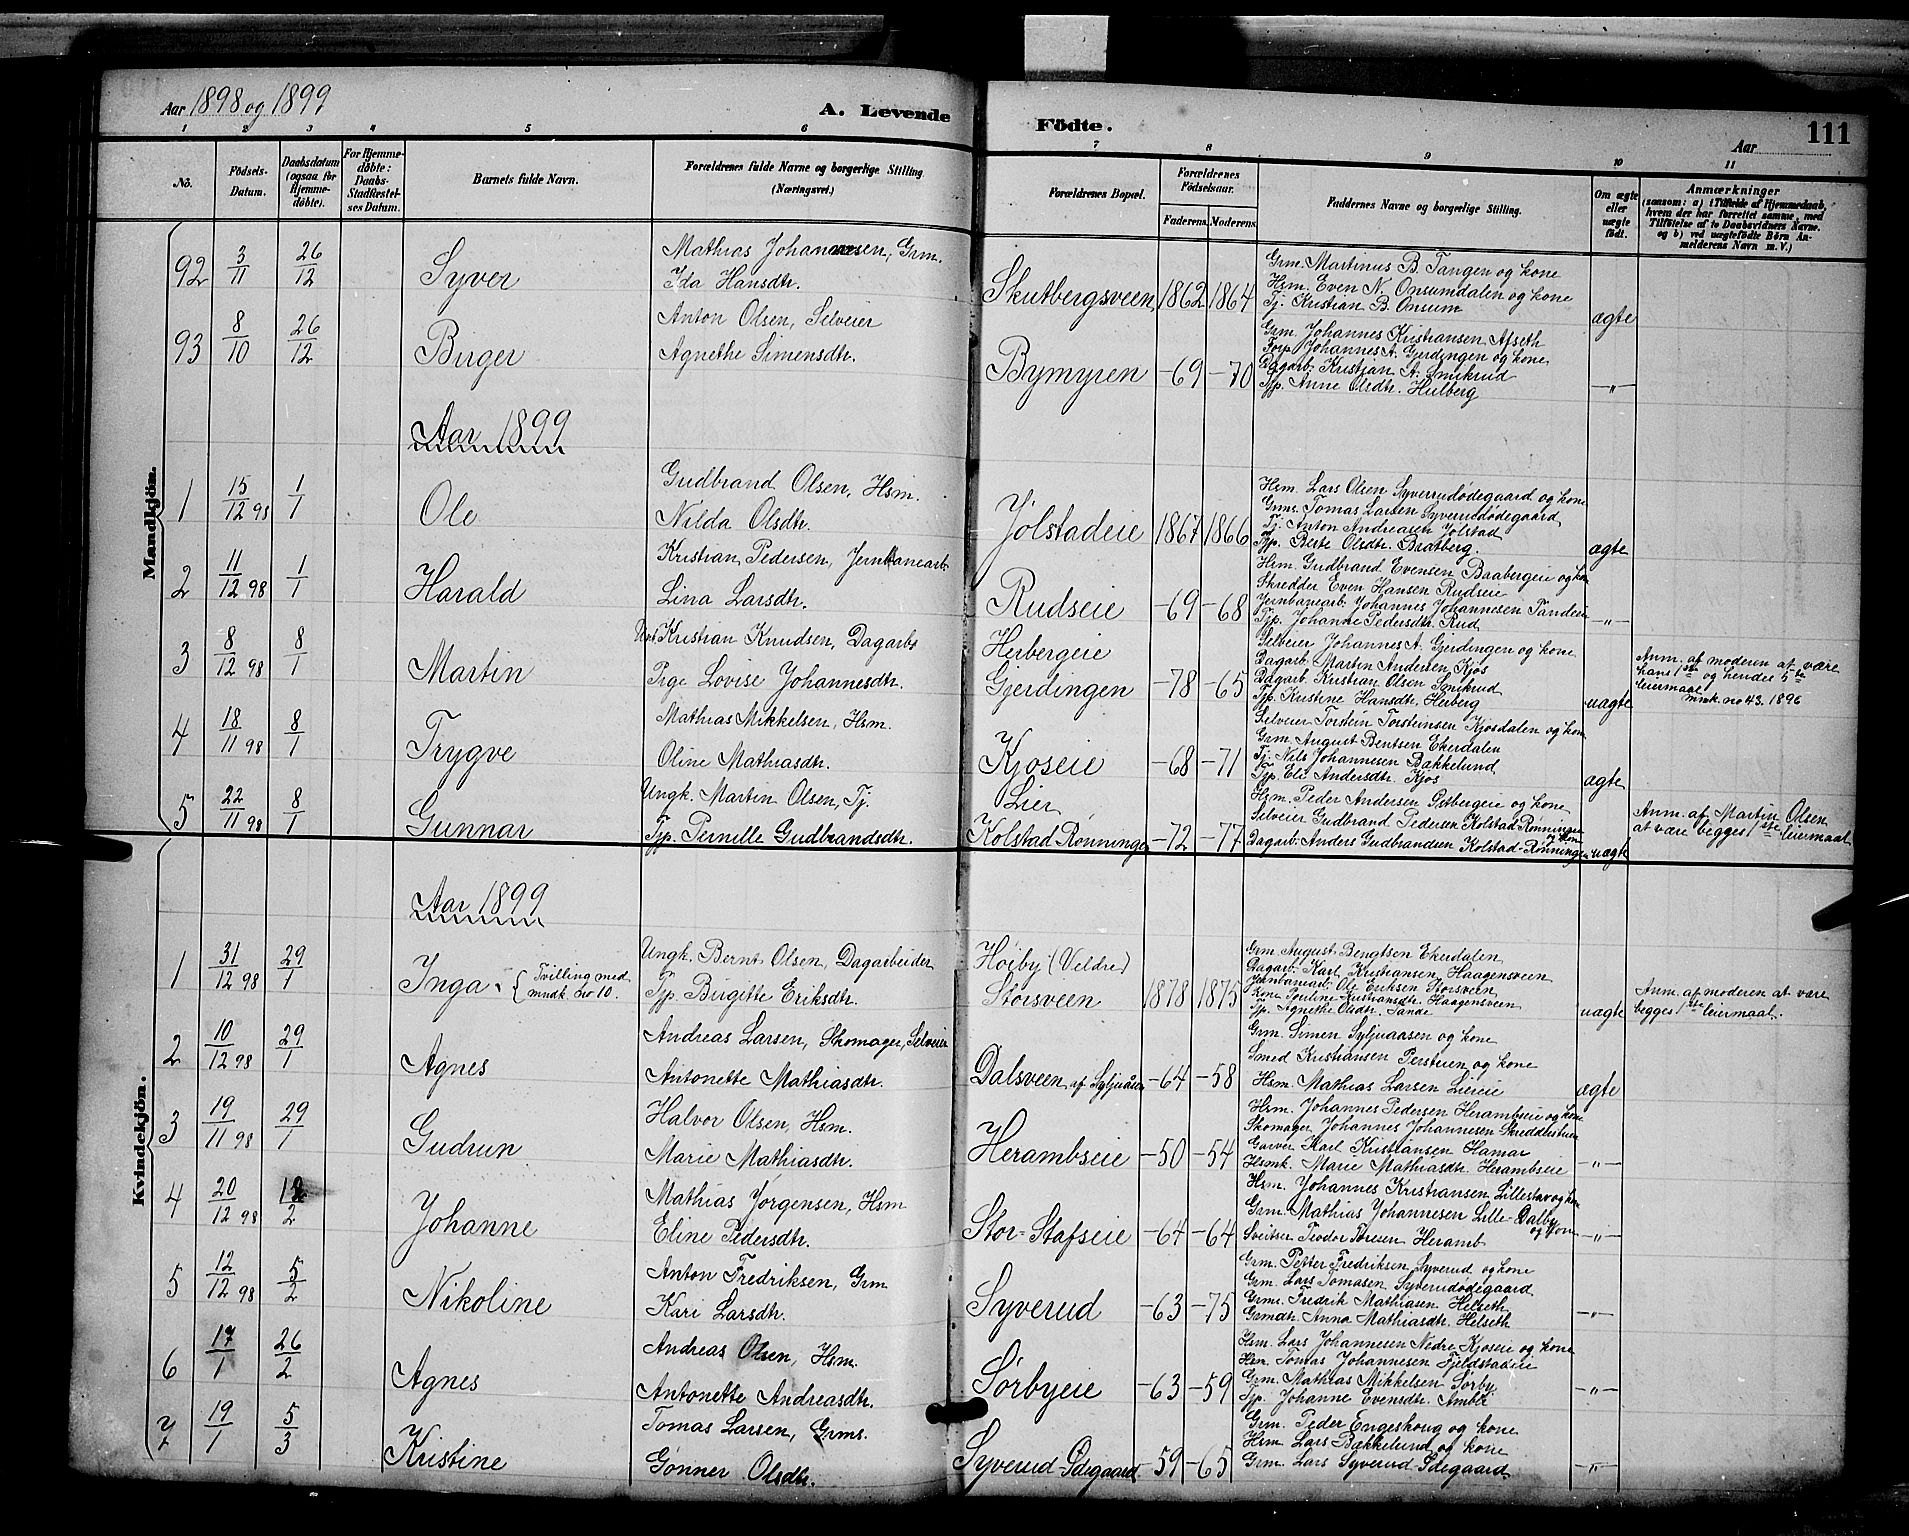 Aar 1898 og 1899
A. Levende Födte.
Aar
111
1 2 3 4 5 6 7 8 9 10 11
No.
Födsels-Datum.
Daabsdatum (ogsaa for Hjemme-döbte).
For Hjemme-döbte: Daabs-Stadfæstel-ses Datum.
Barnets fulde Navn.
Forældrenes fulde Navne og borgerlige Stilling (Næringsvei.)
Forældrenes Bopæl.
Forældrenes Födselsaar.
Faderens. Moderens.
Faddernes Navne og borgerlige Stilling.
Om ægte eller uægte födt.
Anmærkninger
(saasom: a) i Tilfælde af Hjemmedaab, hvem der har forrettet samme, med Tilföielse af to Daabsvidners Navne, og b) ved uægtefödte Börn An-melderens Navn m. V.)
Mandkjön.
92 3/11 26/12 Syver
Mathias Johannesen, Grm.
Ida Hansdtr.
Skutbergsveen 1862 1864
Grm. Martinus B. Tangen og kone
Hsm. Even N. Onsumdalen og kone
Tj. Kristian B. Onsum
ægte
93 8/10 26/12 Birger
Anton Olsen, Selveier
Agnethe Simensdtr.
Bymyren -69 -70
Grm. Johannes Kristiansen Afseth
Forp. Johannes A. Gjerdingen og kone
Dagarb. Kristian A. Smikrud
Tjp. Anne Olsdtr. Hulberg
-"-
Aar 1899
1 15/12 98 1/1 Ole
Gudbrand Olsen, Hsm.
Nilda Olsdtr.
Jølstadeie 1867 1866
Hsm. Lars Olsen Syverrudødegaard og kone
Grms. Tomas Larsen Syverrudødegaard
Tj. Anton Andreasen Jølstad
Tjp. Berte Olsdtr. Bratberg.
ægte
2 11/12 98 1/1 Harald
Kristian Pedersen, Jernbanearb.
Lina Larsdtr.
Rudseie -69 -68
Hsm. Gudbrand Evensen Baabergeie og kone
Skredder Even Hansen Rudseie
Jernbanearb. Johannes Johannesen Tandeeie
Tjp. Johanne Pedersdtr. Rud
-"-
3 8/12 98 8/1 Martin
Ungk. Kristian Knudsen, Dagarb.
Pige Lovise Johannesdtr.
Herbergeie
Gjerdingen -78 -65
Selveier Johannes A. Gjerdingen og kone
Dagarb. Martin Andersen Kjos
Dagarb. Kristian Olsen Smikrud
Tjp. Kristine Hansdtr. Herberg
uægte
Anm. af moderen at være
hans 1ste og hendes 5te
leiermaal.
mnk. no 43. 1896
4 18/11 98 8/1 Trygve
Mathias Mikkelsen, Hsm.
Oline Mathiasdtr.
Kjoseie -68 -71
Selveier Torstein Torsteinsen Kjosdalen og kone
Grm. August Bentsen Ekerdalen
Tj. Nils Johannesen Bakkelund
Tjp. Eli Andersdtr. Kjos
ægte
5 22/11 98 8/1 Gunnar
Ungk. Martin Olsen, Tj.
Tjp. Pernille Gudbrandsdtr.
Lier
Kolstad Rønningen -72 -77
Hsm. Peder Andersen Østbergeie og kone
Selveier Gudbrand Pedersen Kolstad Rønningen og kone
Dagarb. Anders Gudbrandsen Kolstad-Rønningen
uægte
Anm. af Martin Olsen
at være begges 1ste leiermaal
Kvindekjön.
Aar 1899
1 31/12 98 29/1 Inga { Tvilling med
mndk. no 10.
Ungk. Bernt Olsen, Dagarbeider
Tjp. Birgitte Eriksdtr.
Høiby (Veldre)
Storsveen 1878 1875
Grm. August Bengtsen Ekerdalen
Dagarb. Karl Kristiansen Haagensveen
Jernbanearb. Ole Eriksen Storsveen
Kone Pauline Kristiansdtr. Haagensveen
Tjp. Agnethe Olsdtr. Sande
uægte
Anm. af moderen at være
begges 1ste leiermaal.
2 10/12 98 29/1 Agnes
Andreas Larsen, Skomager, Selveier
Antonette Mathiasdtr.
Dalsveen af Syljuåsen -64 -58
Grm. Simen Syljuaasen og kone
Smed Kristiansen Perstuen og kone
Hsm. Mathias Larsen Liereie
ægte
3 19/11 98 29/1 Gudrun
Halvor Olsen, Hsm.
Marie Mathiasdtr.
Herambseie -50 -54
Hsm. Johannes Pedersen Herambseie og kone
Skomager Johannes Johannesen Skredderstuen
Garver Karl Kristiansen Hamar
Hsmk. Marie Mathiasdtr. Herambseie
-"-
4 20/12 98 12/2 Johanne
Mathias Jørgensen, Hsm
Eline Pedersdtr.
Stor-Stafseie -64 -64
Hsm. Johannes Kristiansen Lillestav og kone
Grm. Mathias Johannesen Lille-Dalby og kone
Sveitser Teodor Toresen Heramb
-"-
5 12/12 98 5/2 Nikoline
Anton Fredriksen, Grm
Kari Larsdtr.
Syverud -63 -75
Grm. Petter Fredriksen Syverud og kone
Grm. Lars Tomasen Syverudødegaard
Grms. Fredrik Mathiasen Helseth
Grmdtr. Anna Mathiasdtr. Helseth
-"-
6 17/1 26/2 Agnes
Andreas Olsen, Hsm.
Antonette Andreasdtr.
Sørbyeie -63 -59
Hsm. Lars Johannesen Nedre Kjoseie og kone
Hsm. Tomas Johannesen Fjeldstadeie
Grm. Mathias Mikkelsen Sørby
Tjp. Johanne Evensdtr. Ambli
-"-
7 19/1 5/3 Kristine
Tomas Larsen, Grms.
Gønner Olsdtr.
Syverud-Ødegaard -59 -65
Grm. Peder Engeshoug og kone
Hsm. Lars Bækkelund og kone
Grm. Lars Syverud-Ødegaard
-"-